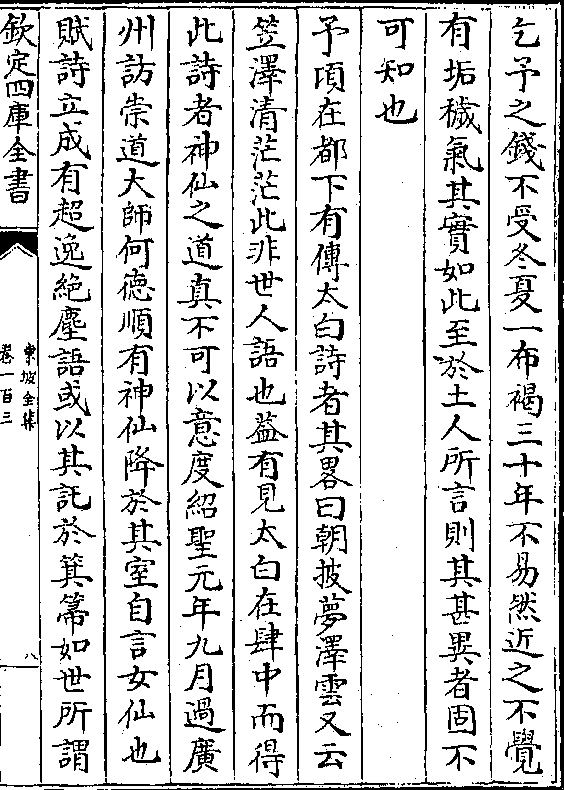 乞予之錢不受冬夏一布褐三十年不易然近之不覺
有垢穢氣其實如此至於土人所言則其甚異者固不
可知也
予頃在都下有傳太白詩者其畧曰朝披夢澤雲又云
笠澤清茫茫此非世人語也葢有見太白在肆中而得
此詩者神仙之道真不可以意度紹聖元年九月過廣
州訪崇道大師何德順有神仙降於其室自言女仙也
賦詩立成有超逸絶塵語或以其託於箕箒如世所謂
欽定四庫全書
東坡全集
卷一百三
八